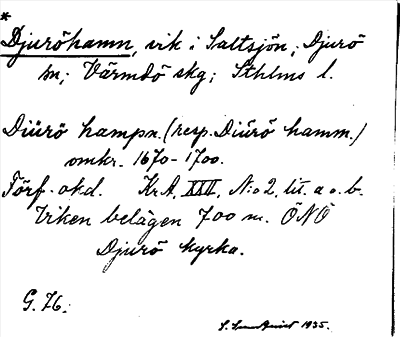 *
Djuröhamn, vik i Saltsjön; Djurö
sn; Värmdö skg; Sthlms l.
Diürö hampn. (resp. Diürö hamm.)
omkr. 1670-1700.
Förf. okd. Kr.A. XXII, N:o 2, lit. a o. b.
Viken belägen 700 m. ÖNÖ
Djurö kyrka.
G. 76.
S. Sundqvist 1935.